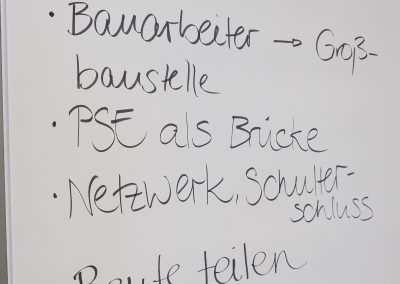 • Bauarbeiter → Groß-
baustelle
• PSE als Brücke
• Netzwerk, Schulter-
schluss
teilen